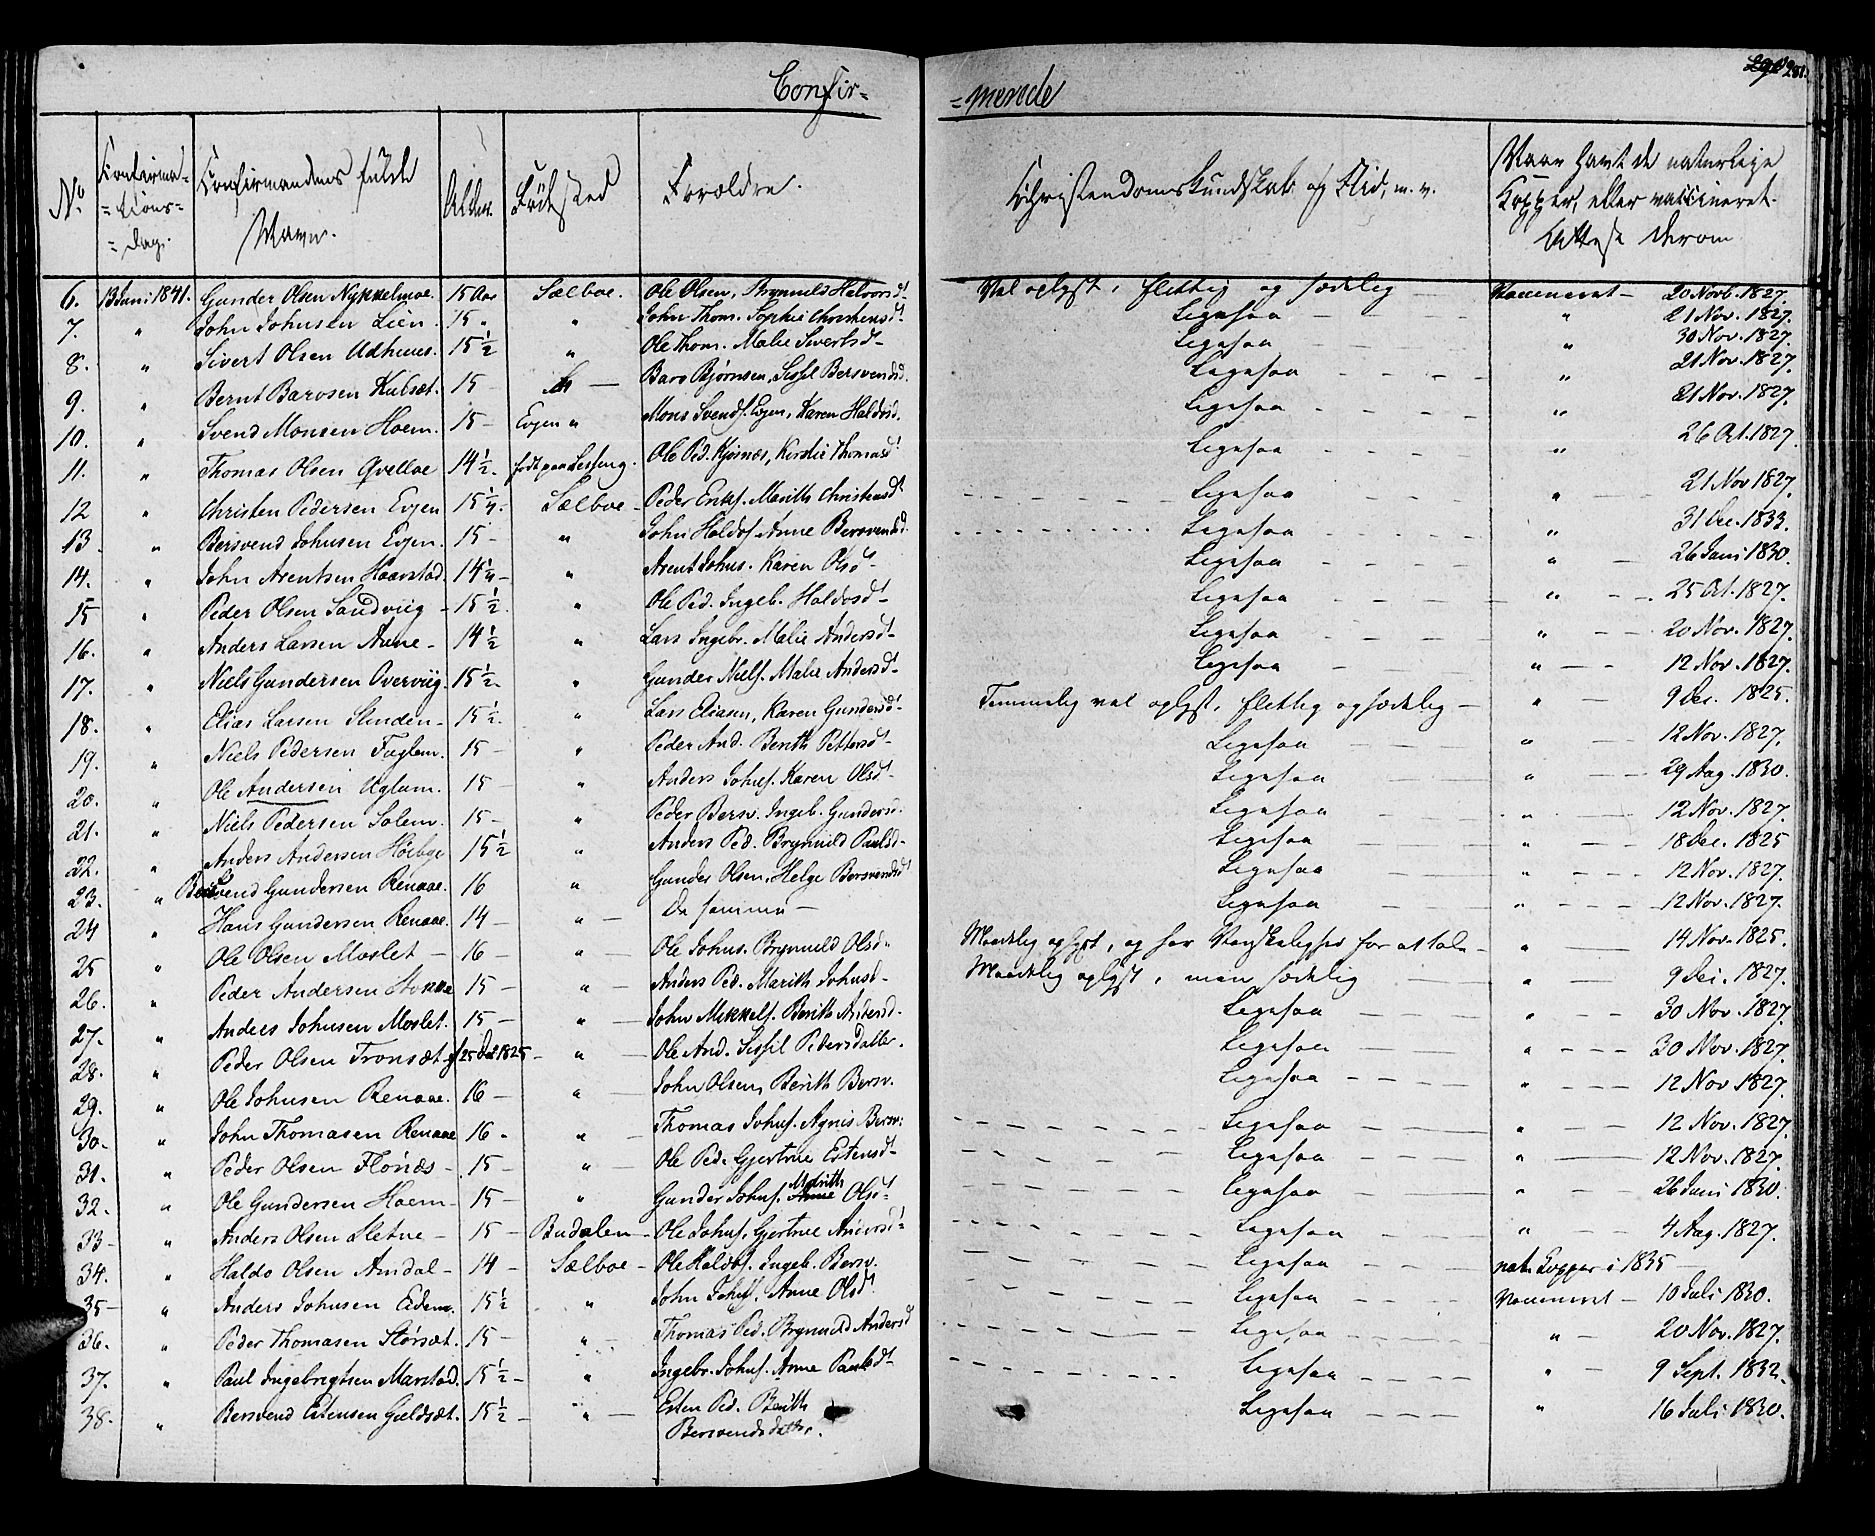 Confir=
=merede
281.
No
Confirma=
=tions=
=dag.
Confirmandens fulde
Navn.
Alder.
Fødested
Forældre.
Christendomskundskab og Flid, m. v.
Naar havt de naturlige
Kopper, eller vaccineret.
Attest derom
6. 13 Juni 1841. Gunder Olsen Nykkelmoe. 15 Aar Sælboe. Ole Olsen, Brynnild Halvorsdt. Vel oplyst, flittig og sædelig Vaccineret – 20 Novb. 1827.
7. " John Johnsen Lien. 15 " " John Thom. Sophie Christensdt. Ligesaa " 21 Nov. 1827.
8. " Sivert Olsen Udhuus. 15 1/2 " Ole Thom. Malie Sivertsdt. Ligesaa " 30 Nov. 1827.
9. " Bernt Barosen Kulsæt. 15 – Baro Bjørnsen, Sissil Bersvendsd. Ligesaa " 21 Nov. 1827.
10. " Svend Monsen Hoem. 15 – Evjen " Mons Svends. Evjen, Karen Haldosd. Ligesaa " 21 Nov. 1827.
11. " Thomas Olsen Qvelloe 14 1/2. født paa Ole Ped. Kjøsnæs, Kirstie Thomasdt Ligesaa " 26 Oct. 1827.
12 " Christen Pedersen Evjen 15 1/4. Sælboe – Peder Eriks. Marith Christensdt Ligesaa " 21 Nov 1827.
13. " Bersvend Johnsen Evjen. 15 – " John Haldos. Anne Bersvendsd. Ligesaa " 31 Dec. 1833.
14. " John Arentsen Haarstad. 14 1/4 – " Arent Johns. Karen Olsdt. Ligesaa " 26 Juni 1830.
15 " Peder Olsen Sandviig – 15 1/2. " Ole Ped. Ingeb. Haldosdt. Ligesaa " 25 Oct. 1827.
16. " Anders Larsen Aune – 14 1/2 " Lars Ingebr. Malie Andersdt – Ligesaa " 20 Nov. 1827.
17. " Niels Gundersen Overviig. 15 1/2. " Gunder Niels. Malie Andersdt – Ligesaa " 12 Nov. 1827.
18. " Elias Larsen Slinden – 15 1/2. " Lars Eliasen, Karen Gundersdt – Temmelig vel oplyst, flittig og sædelig – " 9 Dec. 1825.
19. " Niels Pedersen Fuglem. 15 – " Peder And. Berith Pettersdt – Ligesaa " 12 Nov. 1827.
20. " Ole Andersen Uglum. 15 – " Anders Johns. Karen Olsdt – Ligesaa " 29 Aug. 1830.
21. " Niels Pedersen Solem. 15 – " Peder Bersv. Ingeb. Gundersd. Ligesaa " 12 Nov. 1827.
22. " Anders Andersen Höibye 15 1/2 " Anders Ped. Brynnild Paulsd – Ligesaa " 18 Dec. 1825
23. " Bersvend Gundersen Renaae. 16 " Gunder Olsen, Helge Bersvendsdt Ligesaa " 12 Nov. 1827.
24 " Hans Gundersen Renaae. 14 – " – De samme – Ligesaa " 12 Nov. 1827.
25 " Ole Olsen Moslet – 16 – " – Ole Johns. Brynnild Olsd – Maadelig oplyst, og har Vanskelighed for at tale – " 14 Nov. 1825.
26. " Peder Andersen Stokke 15 – " – Anders Ped. Marith Johnsd – Maadelig oplyst, men sædelig " 9 Dec. 1827.
27. " Anders Johnsen Moslet. 15 – " – John Mikkels. Berith Andersd. Ligesaa " 30 Nov. 1827.
28. " Peder Olsen Tronsæt f. 25 Dec 1825 – " – Ole And. Sissil Pedersdatter. Ligesaa " 30 Nov. 1827.
29. " Ole Johnsen Renaae. 16 – " – John Olsen, Berith Bersv. Ligesaa " 12 Nov. 1827.
30. " John Thomasen Renaae 16. " – Thomas Johns. Agnis Bersv. Ligesaa " 12 Nov. 1827.
31. " Peder Olsen Flönæs – 15 – " – Ole Ped. Gjertrue Estensdt – Ligesaa " 12 Nov. 1827.
32. " Ole Gundersen Hoem – 15 – " Gunder Johns. Marith Olsdt – Ligesaa " 26 Juni 1830.
33 – " Anders Olsen Sletne – 15 – Budalen – Ole Johns. Gjertrue Andersdt – Ligesaa " 4 Aug. 1827.
34. " Haldo Olsen Amdal – 14 – Sælboe – Ole Haldos. Ingeb. Bersv. Ligesaa nat. Kopper i 1835
35 – " Anders Johnsen Eidem. 15 1/2 " John Johns. Anne Olsd. Ligesaa Vaccineret – 10 Juli 1830.
36. " Peder Thomasen Störsæt. 15 – " – Thomas Ped. Brynnild Andersd Ligesaa " 20 Nov. 1827.
37. " Paul Ingebrigtsen Marstad. 15 1/2 – " Ingebr. Johns. Anne Paulsdt – Ligesaa " 9 Sept. 1832.
38. " Bersvend Estensen Gieldsæt. 15 1/2 – " – Esten Ped. Berith Ligesaa " 16 Juli 1830.
Bersvendsdatter.